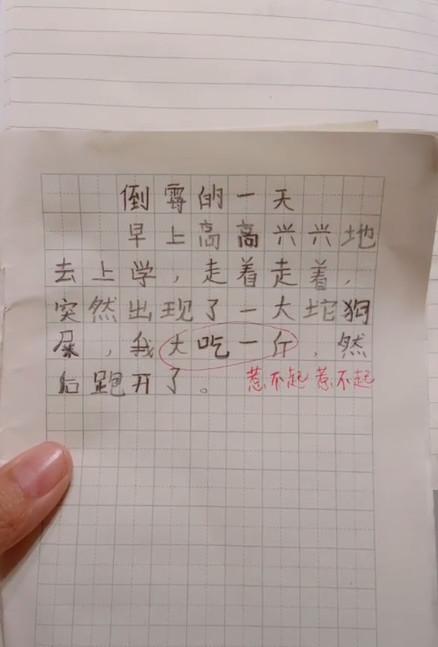 倒霉的一天
早上高高兴兴地
去上学，走着走着，
突然出现了一大坨狗
屎，我大吃一斤，然
后跑开了。
惹不起惹不起